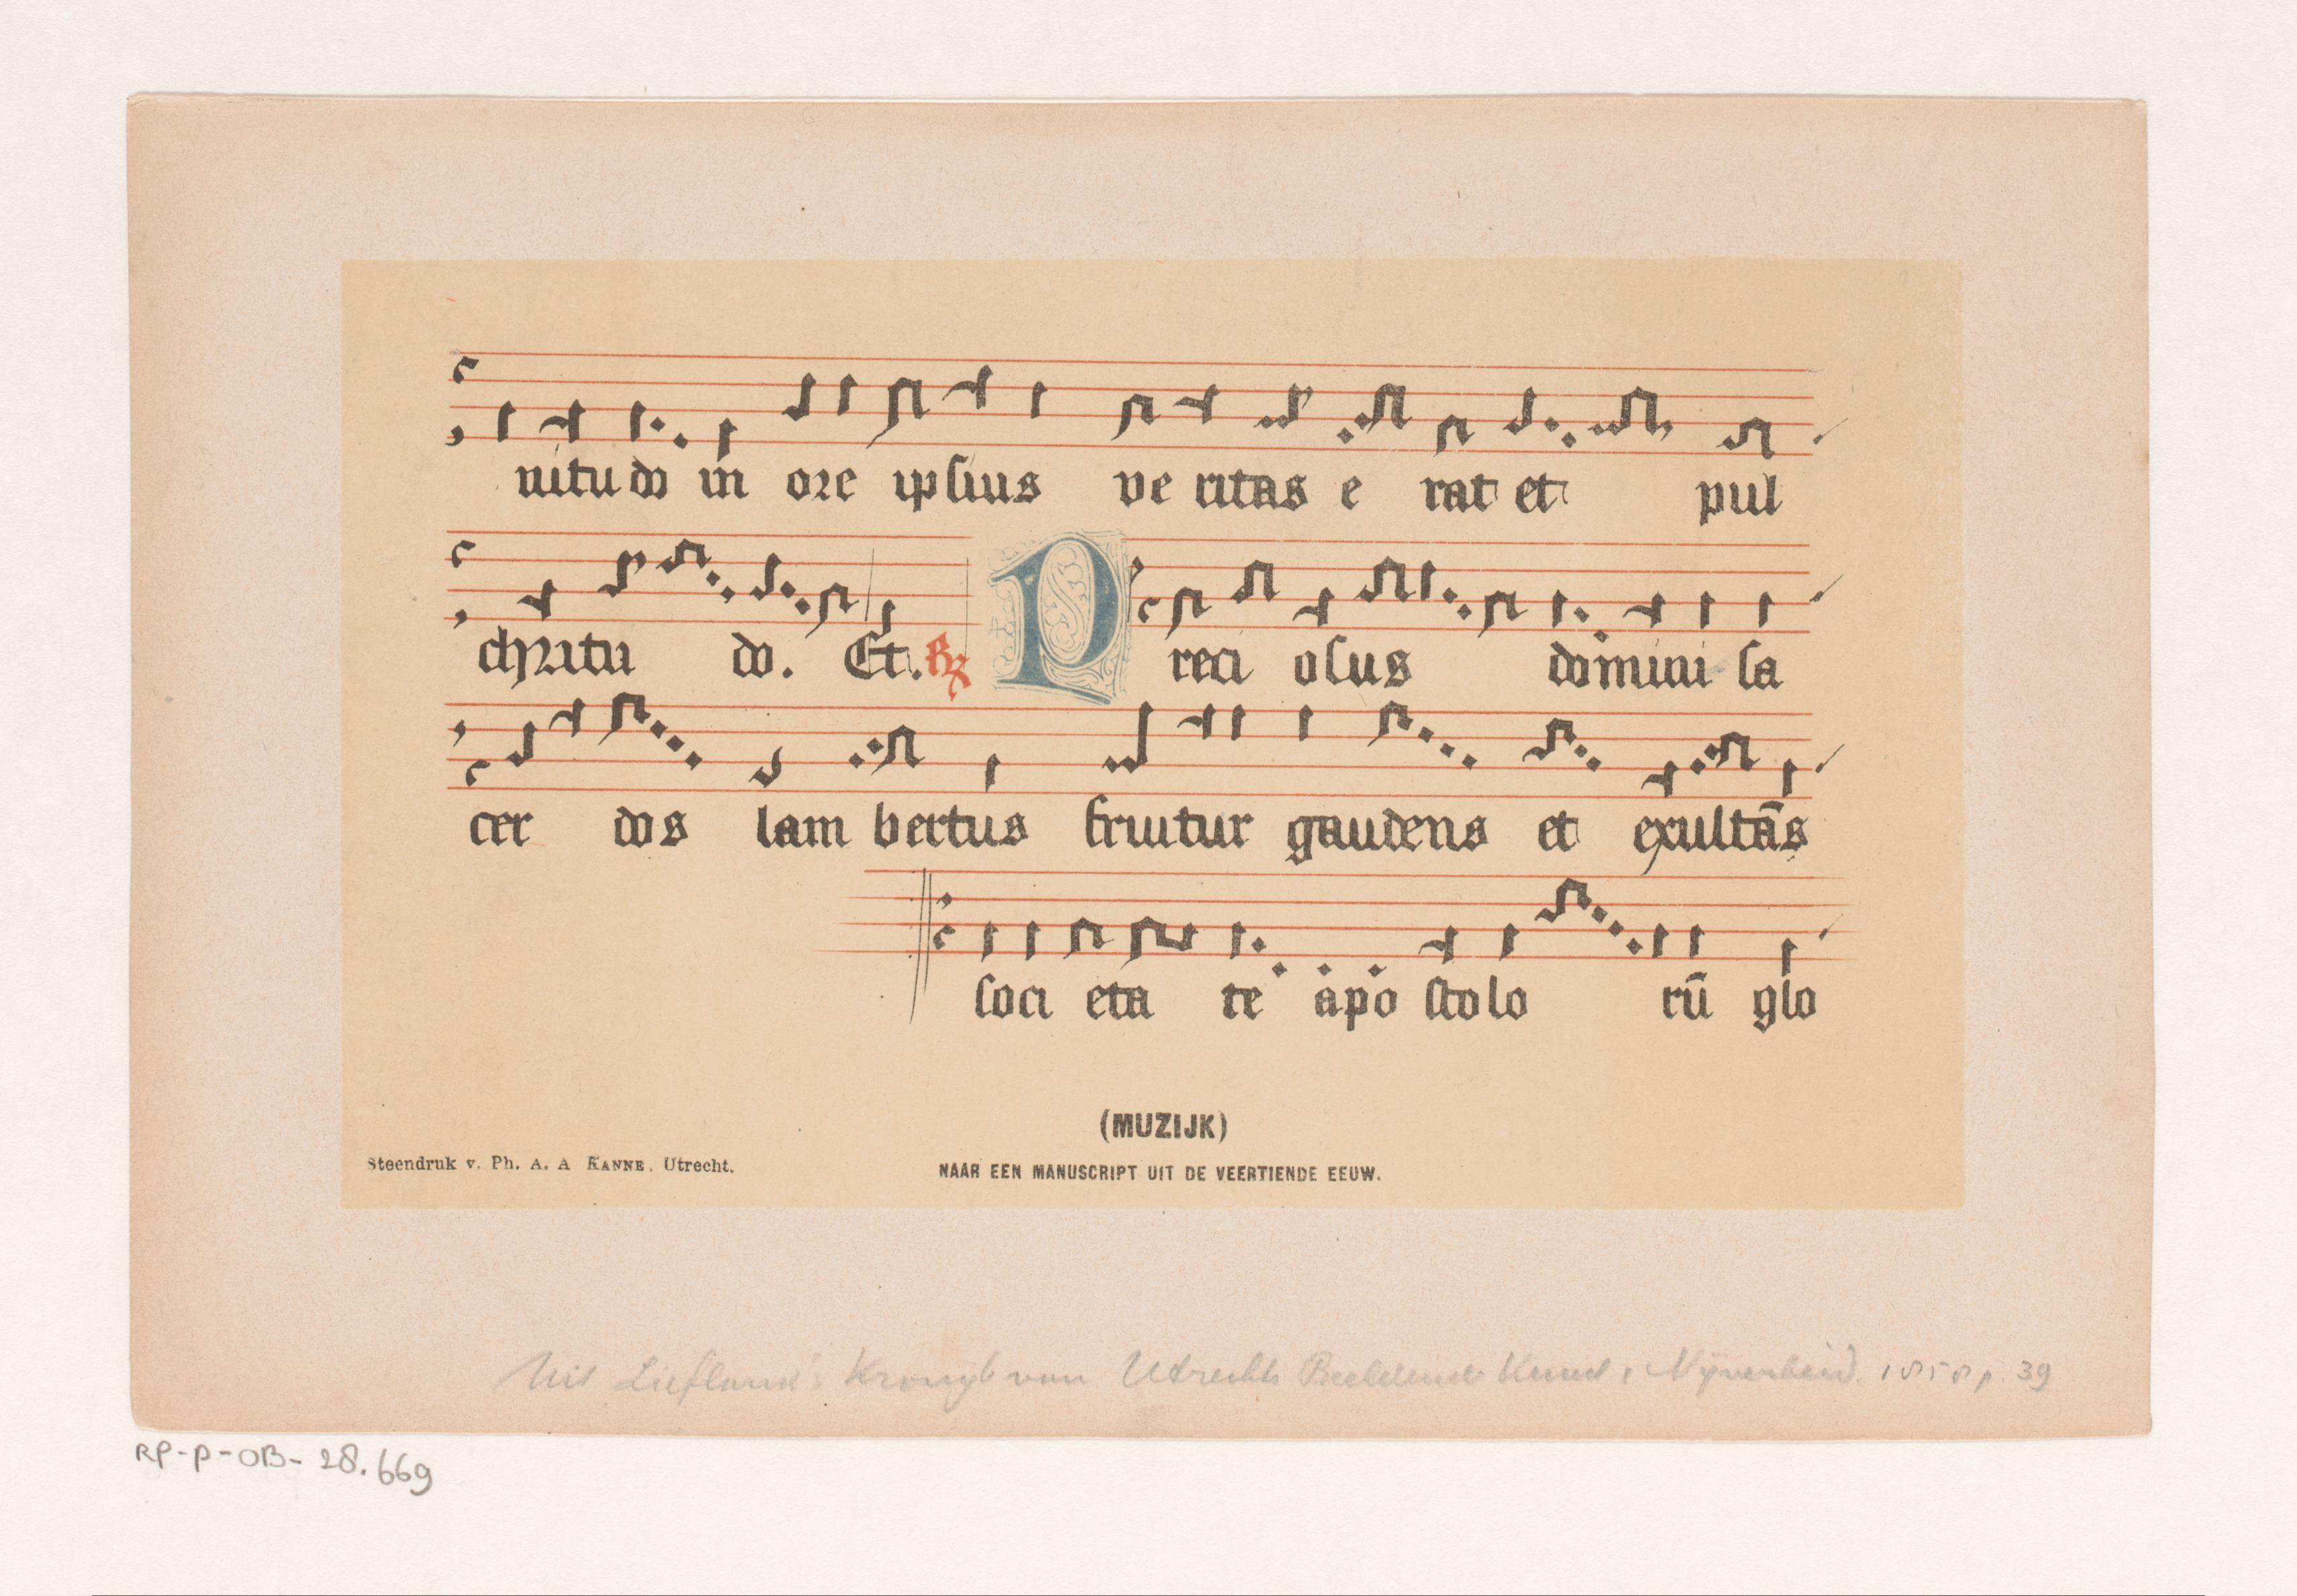 nitu do in ore ipsius ve ritas e rat et pul
chritu do. Et. R Preci osus domini sa
cer dos lam bertus fruitur gaudens et exultās
soci eta te apo stolo rū glo
(MUZIJK)
Steendruk v. Ph. A. A KANNE. Utrecht.
NAAR EEN MANUSCRIPT UIT DE VEERTIENDE EEUW.
Uit Liefland's van Utrechts Beeldende Kunst, Nijverheid. 1858 p. 39
RP-P-OB-28.669